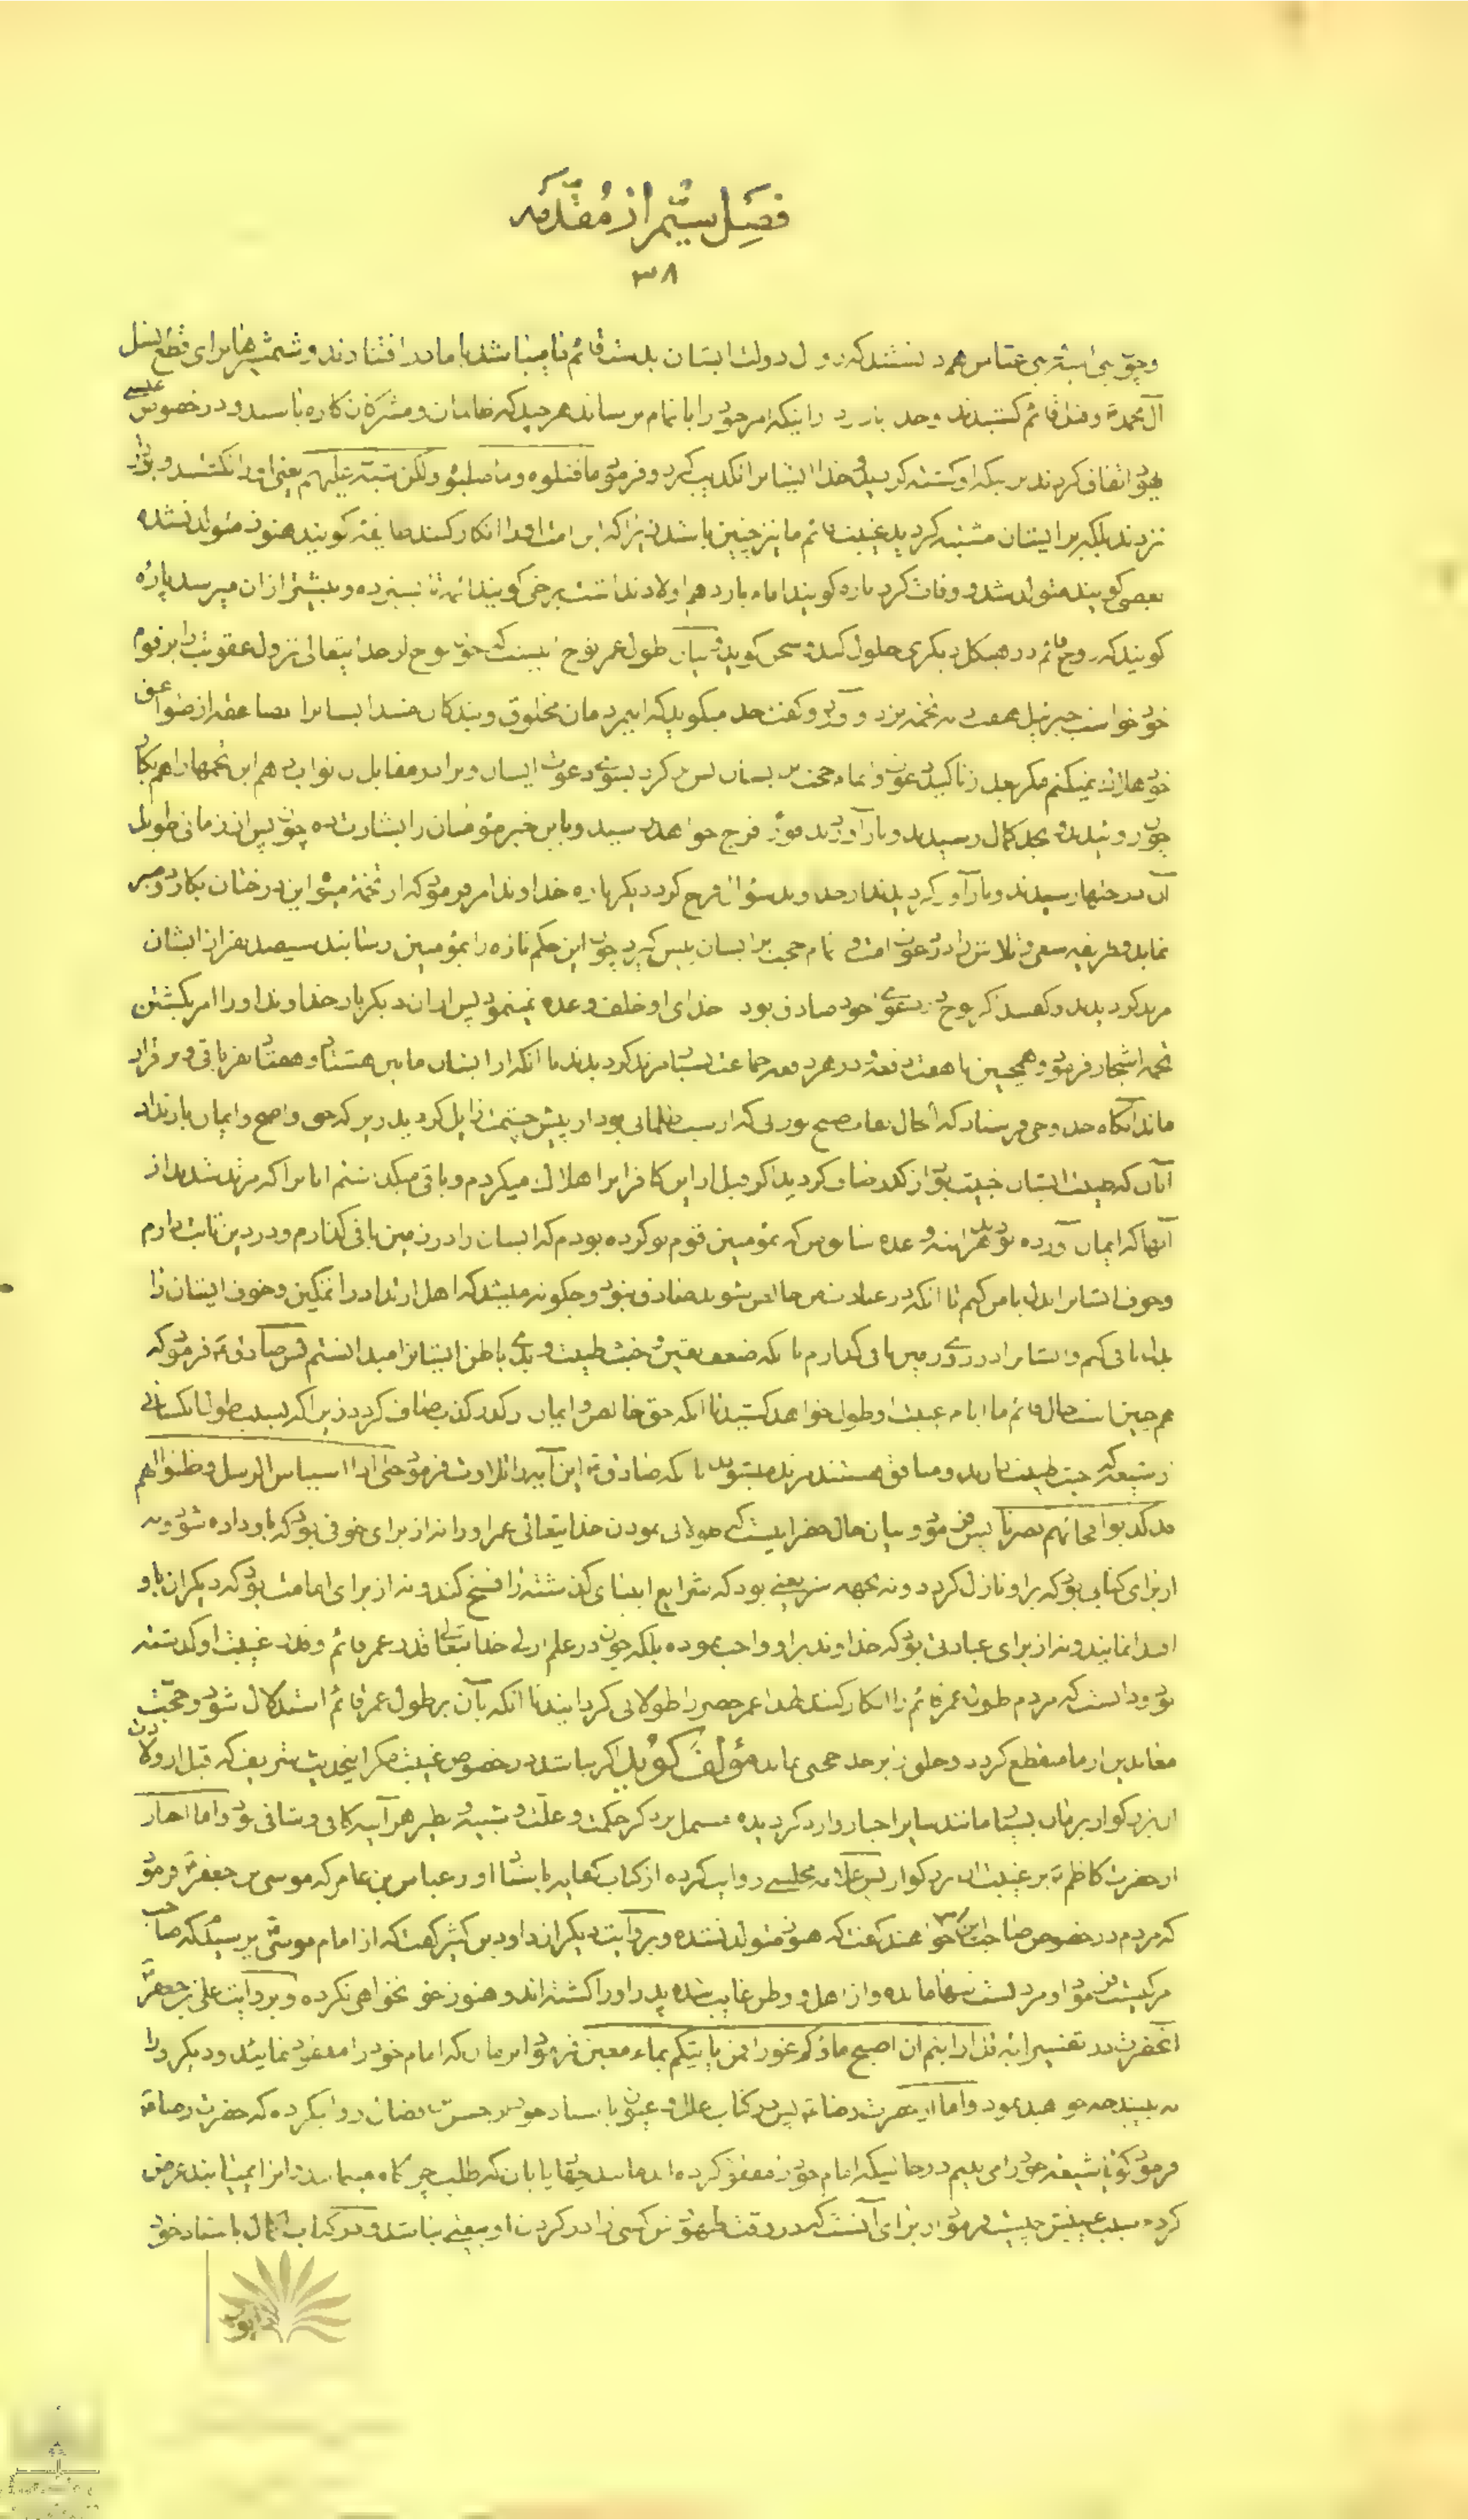 فصل سیّم از مقدّمه
۳۸
و چون بنی امیّه و بنی عباس دانستند که زوال دولت ایشان بدست قائم ما میباشد با ما در افتادند و شمشیرها برای قطع نسل
آل محمد و قتل قائم کشیدند و خدا را اینکه امر خود را باتمام برساند هر چند که ظالمان و مشرکان کاره باشند و در خصوص عیسی
یهود اتفاق کردند بر اینکه او کشته گردید و خدا ایشانرا تکذیب کرد و فرمود ما قتلوه و ما صلبوه ولکن شبّه علیهم یعنی او را نکشتند و بدار
نزدند بلکه بر ایشان مشتبه گردید غیبت قائم ما نیز چنین باشد زیرا که این امت او را انکار کنند طایفه گویند هنوز متولد نشده
بعضی گویند متولد شد و وفات کرد پاره گویند امام یازدهم اولاد نداشت برخی گویند ائمه تا بسیزده و بیشتر از آن میرسد پاره
گویند که روح قائم در هیکل دیگری حلول کرده سخن گوید و بیان طول عمر نوح اینست که چون نوح از خدایتعالی نزول عقوبت را بر قوم
خود خواست جبرئیل هفت دانه تخمه نزد او آورد و گفت خدا میگوید که این مردمان مخلوق و بندگان منند ایشانرا بصاعقه از صواعق
خود هلاک نمیکنم مگر بعد از تاکید دعوت و اتمام حجت بر ایشان پس برگرد بسوی دعوت ایشان و در مقابل آن ثواب دهم این تخمها را هم بکار
چون روئیدند و بحد کمال رسیدند و بار آوردند فرج خواهد رسید و باین خبر مؤمنان را بشارت ده چون پس از زمانی طویل
آن درختها رسیدند و بار آور گردیدند از خدا وعده سؤال فرج کرد دیگرباره خداوند امر فرمود که از تخمه میوه این درختان بکارد و صبر
نماید و طریقه سعی و تلاش را در دعوت امت و اتمام حجت بر ایشان پیش گیرد چون این حکم تازه را بمؤمنین رسانید سیصد نفر از ایشان
مرتد گردیدند و گفتند که نوح اگر در دعوی خود صادق بود خدای او خلف وعده نمینمود پس از آن دیگر بار خداوند او را امر بکشتن
تخمه اشجار فرمود و همچنین تا هفت دفعه در هر دفعه جماعت بسیار مرتد گردیدند تا آنکه از ایشان مابین هشتاد و هفتاد نفر باقی و برقرار
ماند آنگاه خدا وحی فرستاد که الحال نقاب صبح نورانی که از شب ظلمانی بود از پیش چشمت زایل گردید زیرا که حق واضح و ایمان با ارتداد
آنان که طینت ایشان خبیث بود از کدر صاف گردید اگر قبل از این کافرانرا هلاک میکردم و باقی میگذاشتم آنانرا که مرتد شدند از
آنها که ایمان آورده بودند هر آینه وعده سابق من که بمؤمنین قوم تو کرده بودم که ایشان را در زمین باقی گذارم و در دین ثابت دارم
و خوف ایشانرا بدل بامن کنم تا آنکه در عبادت من خالص شوند صادق نبود و چگونه میشد که اهل ارتداد را تمکین و خوف ایشان را
بدل بامن کنم و ایشانرا در روی زمین باقی گذارم با آنکه ضعف یقین و خبث طینت و بدی باطن ایشانرا میدانستم پس صادق فرمود که
همچنین است حال قائم ما ایام غیبت او طول خواهد کشید تا آنکه حق خالص و ایمان از کدر کذب صاف گردد زیرا که بسبب طول آن کسانی
از شیعه که خبث طینت دارند و منافق هستند مرتد میشوند تا آنکه صادق این آیه را تلاوت فرمود حتی اذا استیأس الرسل و ظنوا انهم
قد کذبوا فجائهم نصرنا پس فرمود و بیان حال خضر اینست که طولانی نمودن خدایتعالی عمر او را نه از برای خوفی بود که باو داده شود و نه
از برای کتابی بود که بر او نازل کرد و نه بجهة شریعتی بود که شرایع انبیای گذشته را فسخ کند و نه از برای امامت بود که دیگران باو
اقتدا نمایند و نه از برای عبادتی بود که خداوند بر او واجب نموده بلکه چون در علم ازلی خدایتعالی قدر عمر قائم و قدر غیبت او گذشته
بود و دانست که مردم طول عمر قائم را انکار کنند لهذا عمر خضر را طولانی گردانید تا آنکه بآن بر طول عمر قائم استدلال شود و حجت
معاندین از ما منقطع گردد و خلق را بر خدا حجتی نماند مؤلف گوید اگر نباشد در خصوص غیبت مگر اینحدیث شریف که قبل از ولادت
آن بزرگوار بزمان بسیار مانند سایر اخبار وارد گردیده مشتمل بر ذکر حکمت و علت و شبیه و نظیر هر آینه کافی و شافی بود و اما اخبار
از حضرت کاظم بر غیبت آن بزرگوار پس علامه مجلسی روایت کرده از کتاب کفایه باسناد او از عباس بن عامر که موسی بن جعفر فرمود
که مردم در خصوص صاحب این امر خواهند گفت که هنوز متولد نشده و بروایت دیگر از داود بن کثیر گفت که از امام موسی پرسیدم که صاحب
امر کیست فرمود او مردیست تنها مانده و از اهل و وطن غایب شده پدر او را کشته‌اند و هنوز خونخواهی نکرده و بروایت علی بن جعفر
آنحضرت در تفسیر آیه قل ارایتم ان اصبح ماؤکم غورا فمن یاتیکم بماء معین فرمود در زمان که امام خود را مفقود نمائید و دیگر او را
نه بینید چه خواهید نمود و اما از حضرت رضا پس در کتاب علل و عیون باسناد خود از حسن بن فضال روایکرده که حضرت رضا
فرمود گویا شیعه خود را می‌بینم در حالتیکه امام خود را مفقود کرده‌اند مانند چهارپایان که طلب چراگاه مینمایند و آنرا نمییابند عرض
کردم سبب غیبتش چیست فرمود از برای آنست که در وقت ظهورش کسی را در گردن او بیعتی نباشد و در کتاب کمال باسناد خود